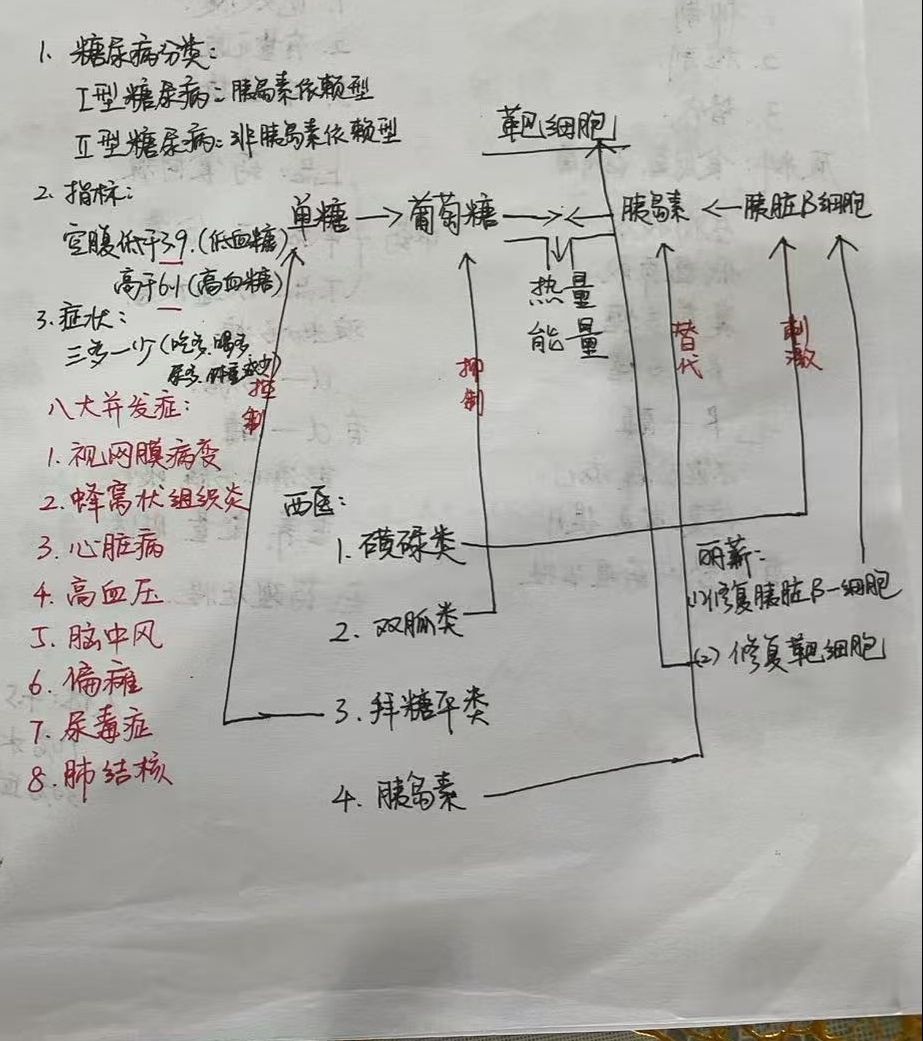 1. 糖尿病分类:
I型糖尿病: 胰岛素依赖型
II型糖尿病: 非胰岛素依赖型
2. 指标:
空腹低于3.9.(低血糖)
高于6.1(高血糖)
3. 症状:
三多一少(吃多、喝多、
尿多、体重减少)
八大并发症:
1. 视网膜病变
2. 蜂窝状组织炎
3. 心脏病
4. 高血压
5. 脑中风
6. 偏瘫
7. 尿毒症
8. 肺结核
靶细胞
单糖→葡萄糖→←胰岛素←胰脏β细胞
热量
能量
控制
抑制
替代
刺激
西医:
1. 磺碌类
2. 双胍类
3. 拜糖平类
4. 胰岛素
丽薪:
(1)修复胰脏β-细胞
(2)修复靶细胞